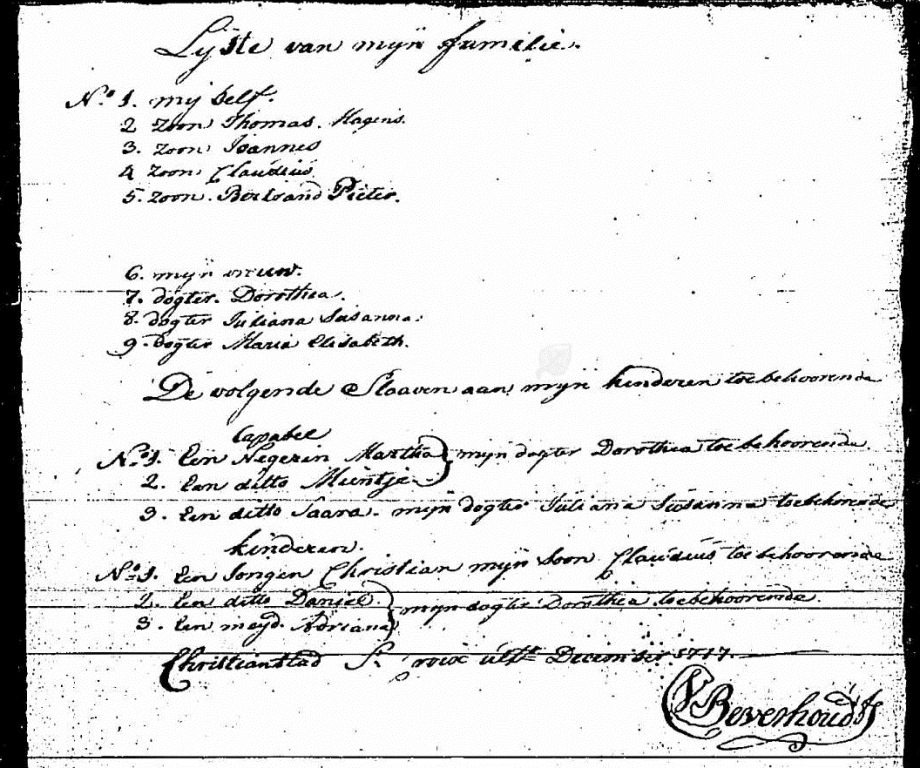 Lyste van myn familie.
No. 1. mij Self.
2 zoon Thomas. Hagens.
3. zoon Ioannes
4 zoon Claudius
5. zoon. Bertrand Pieter.
6. myn vrouw.
7. dogter. Dorothea.
8. dogter Iuliana Susanna.
9. dogter Maria Elisabeth.
De volgende Slaaven aan myn kinderen toebehoorende
Capabel
No. 1. Een Negerin Martha
2. Een ditto Mientje } myn dogter Dorothea toebehoorende
3. Een ditto Saara. myn dogter Iuliana Susanna toebehorende
kinderen.
No. 1. Een Jongen Christian myn Soon Claudius toebehoorende
2. Een ditto Daniel
3. Een meyd. Adriana } myn dogter Dorothea toebehoorende.
Christianstad St. Croix ult. December
Beverhoudt